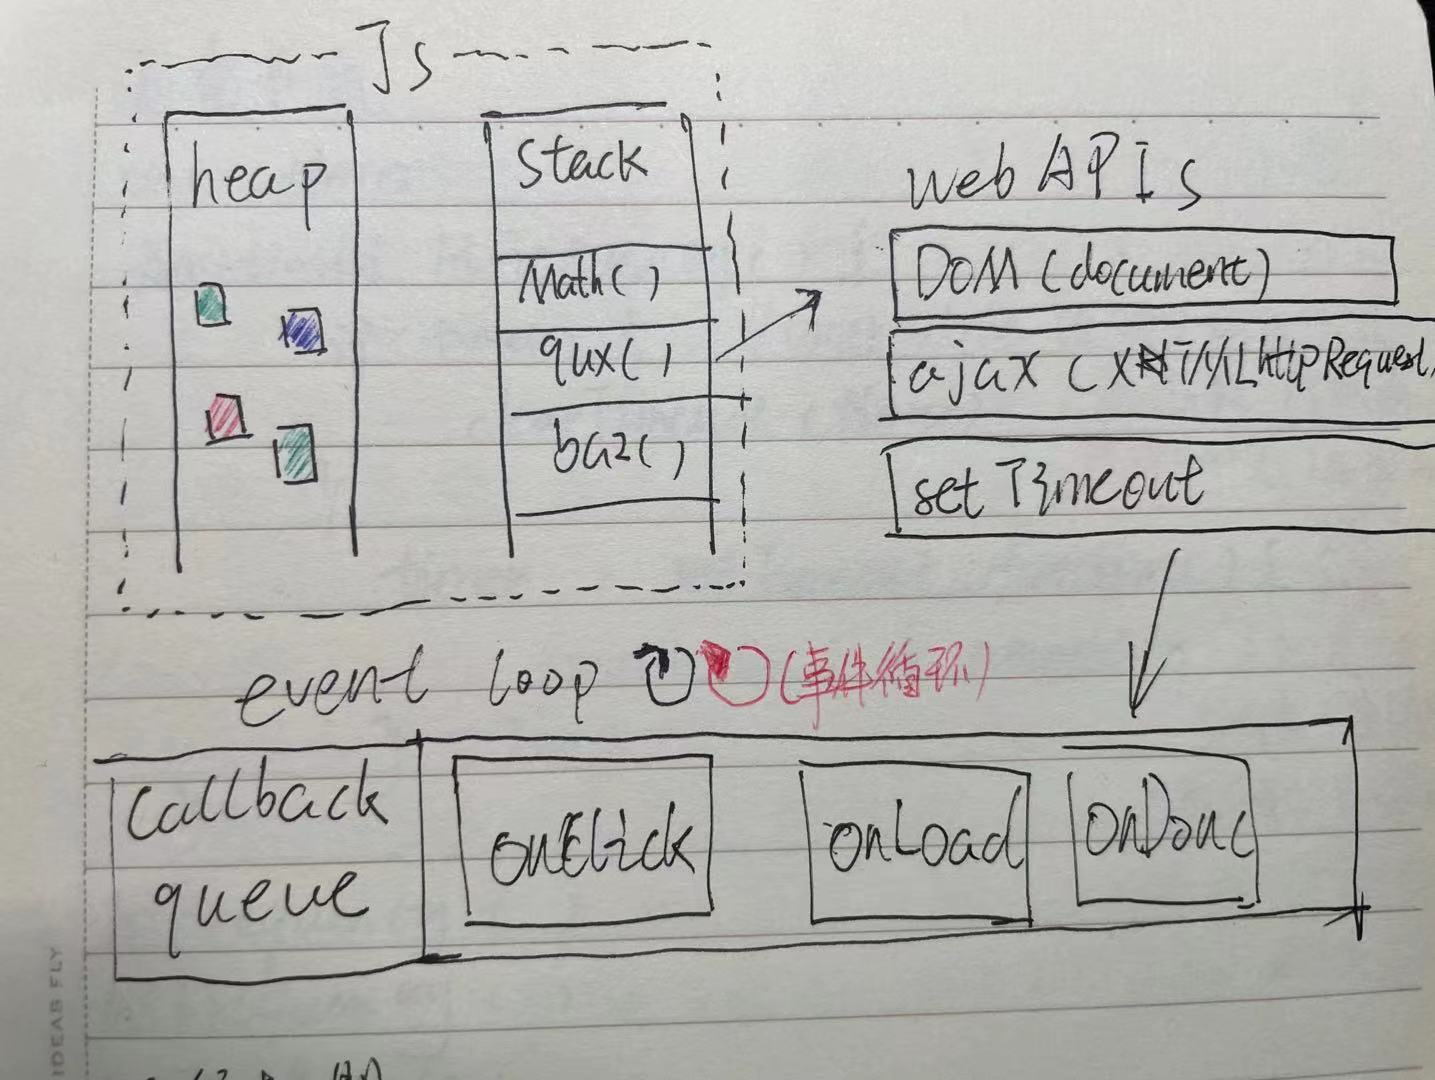 Js
heap
Stack
Math()
qux()
baz()
web APIs
DOM (document)
ajax (XMLHttpRequest
setTimeout
event loop (事件循环)
Callback
queue
onClick
onLoad
onDone
IDEAS FLY